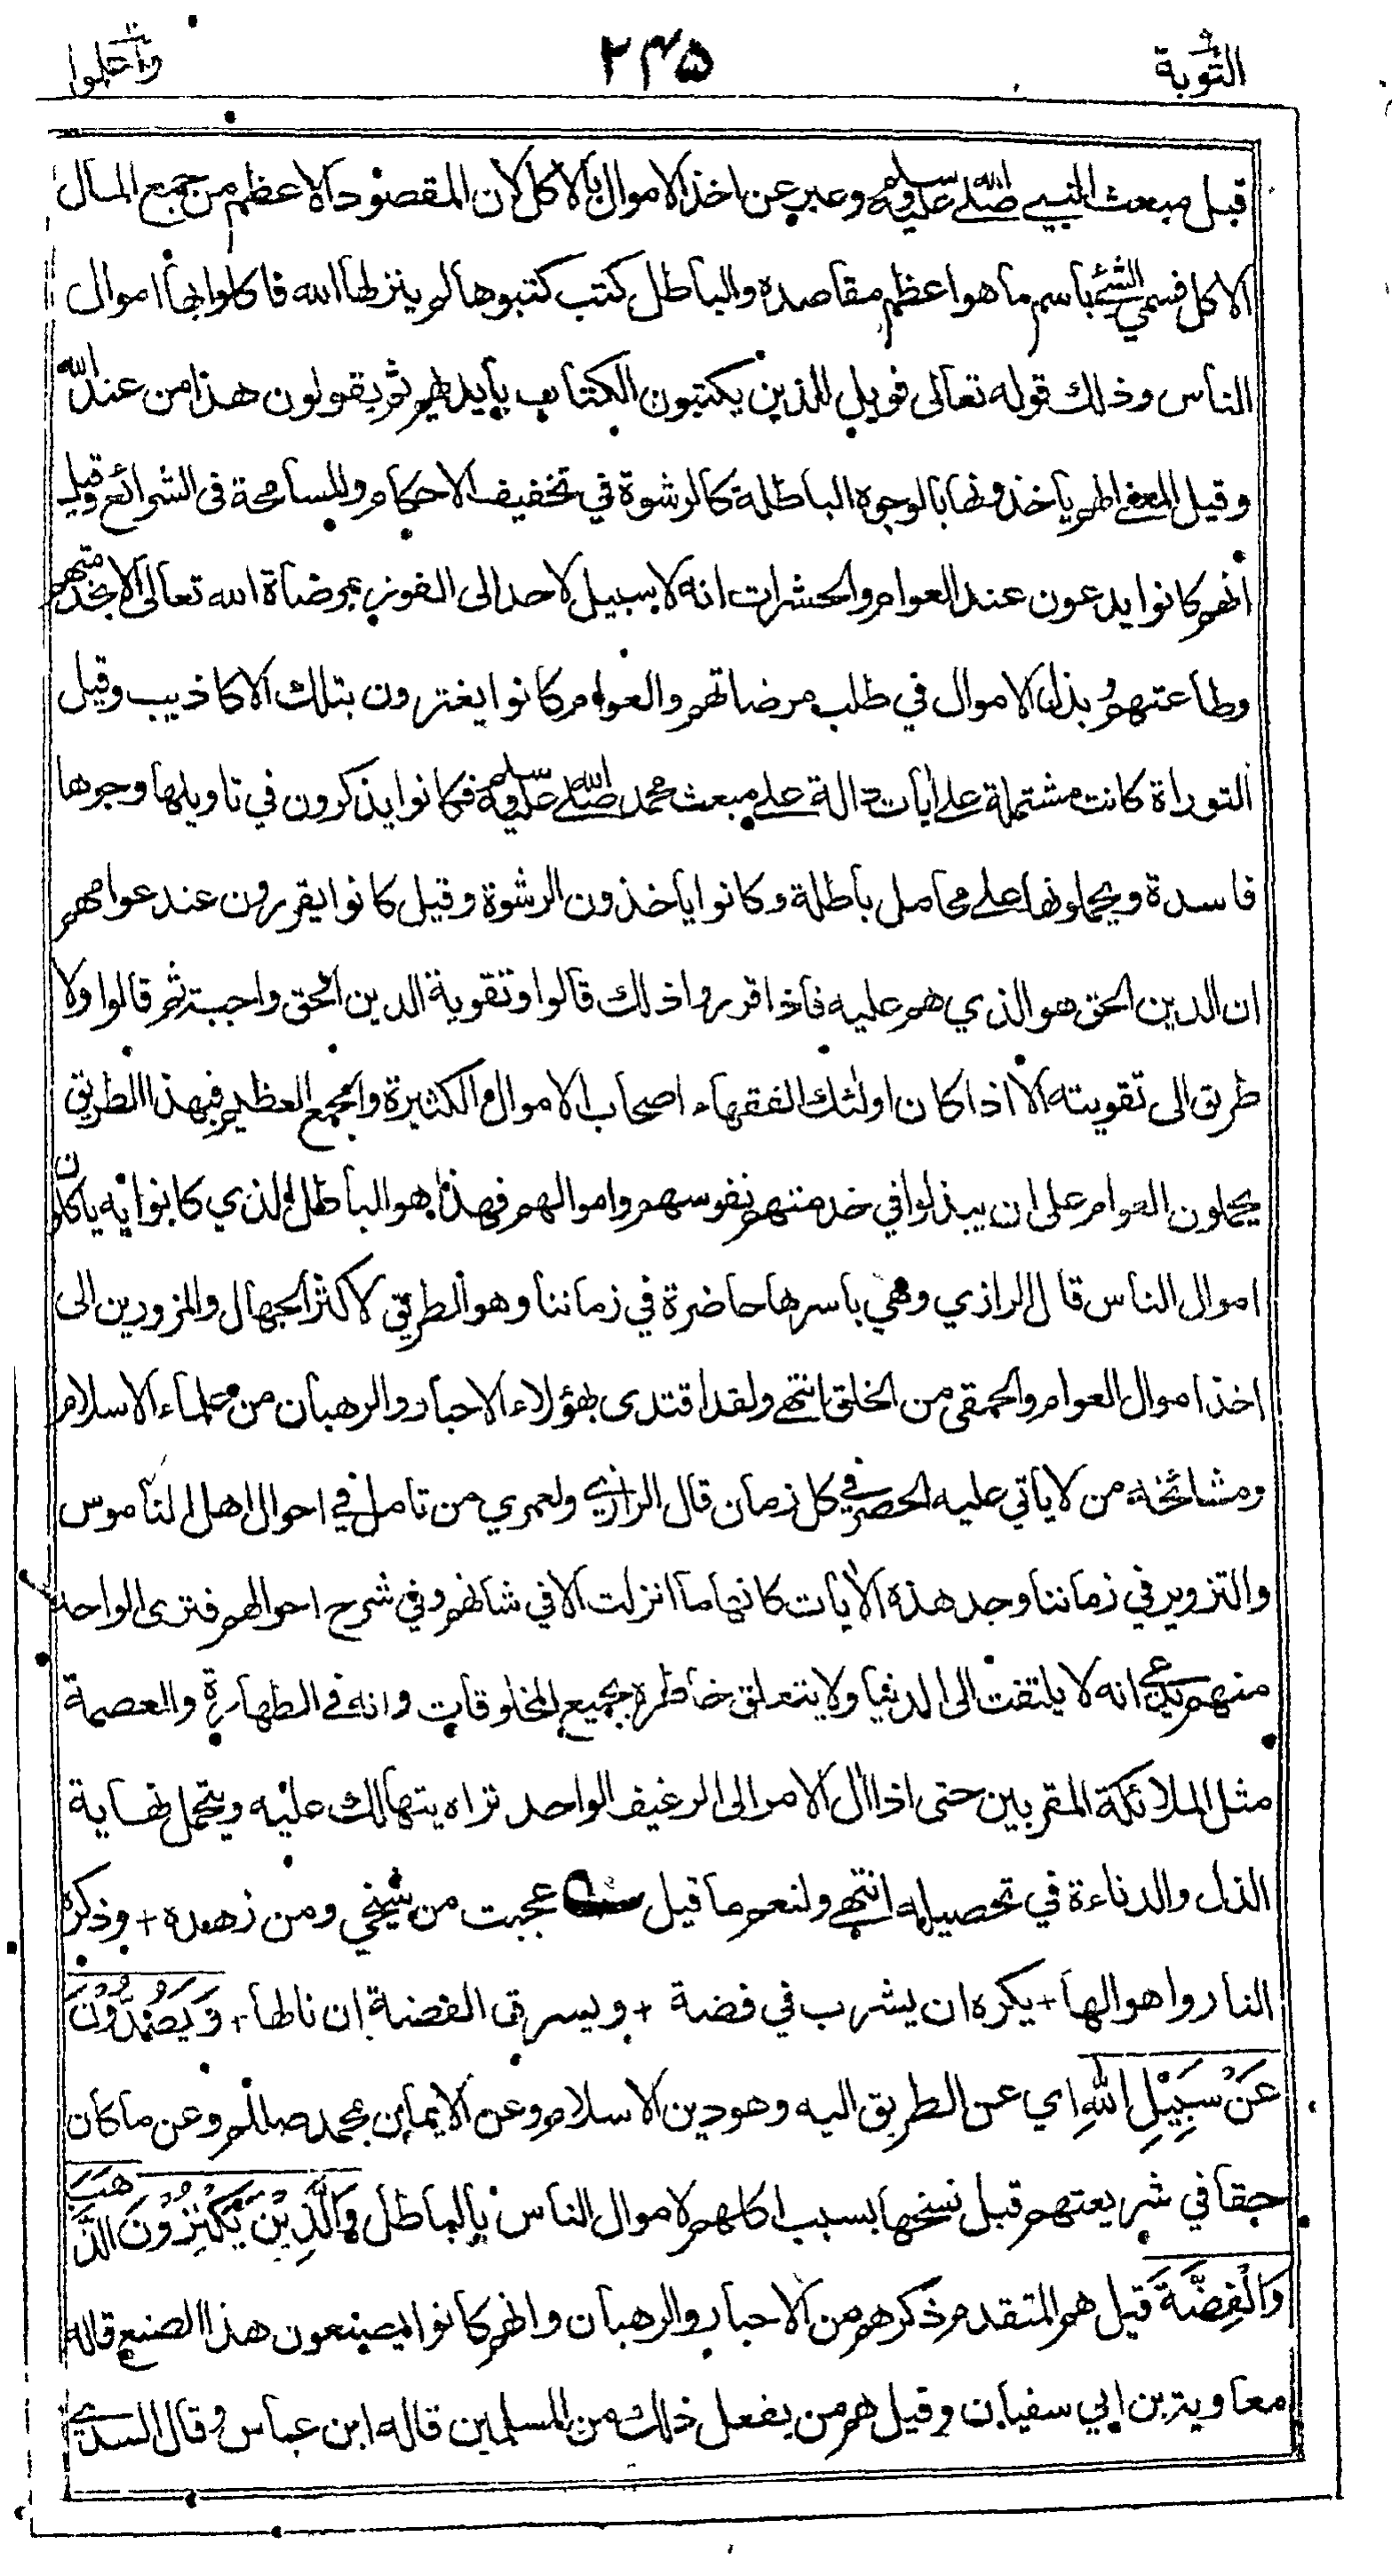 التوبة ٢٣٥ واعلموا
قبل مبعث النبي صلى الله عليه وسلم وعبر عن اخذ الاموال بالاكل لان المقصود الاعظم من جمع المال
الاكل فسمي الشئ باسم ما هو اعظم مقاصده والباطل كتب كتبوها لم ينزلها الله فاكلوا بها اموال
الناس وذلك قوله تعالى فويل للذين يكتبون الكتاب بأيديهم ثم يقولون هذا من عند الله
وقيل المعنى انهم ياخذونها بالوجوه الباطلة كالرشوة في تخفيف الاحكام والمسامحة في الشرائع وقيل
انهم كانوا يدعون عند العوام والحشرات انه لا سبيل لاحد الى الفوز بمرضاة الله تعالى الا بخدمتهم
وطاعتهم وبذل الاموال في طلب مرضاتهم والعوام كانوا يغترون بتلك الاكاذيب وقيل
التوراة كانت مشتملة على ايات دالة على مبعث محمد صلى الله عليه وسلم فكانوا يذكرون في تاويلها وجوها
فاسدة ويحملونها على محامل باطلة وكانوا ياخذون الرشوة وقيل كانوا يقررون عند عوامهم
ان الدين الحق هو الذي هم عليه فاذا قرروا ذلك قالوا وتقوية الدين الحق واجبة ثم قالوا ولا
طريق الى تقويته الا اذا كان اولئك الفقهاء اصحاب الاموال الكثيرة والجمع العظيم فبهذا الطريق
يحملون العوام على ان يبذلوا في خدمتهم نفوسهم واموالهم فهذا هو الباطل الذي كانوا به ياكلون
اموال الناس قال الرازي وهي باسرها حاضرة في زماننا وهو الطريق لاكثر الجهال والمزورين الى
اخذ اموال العوام والحمقى من الخلق انتهى ولقد اقتدى بهؤلاء الاحبار والرهبان من علماء الاسلام
ومشائخه من لا ياتي عليه الحصر في كل زمان قال الرازي ولعمري من تامل في احوال اهل الناموس
والتزوير في زماننا وجد هذه الايات كانها ما انزلت الا في شانهم وفي شرح احوالهم فترى الواحد
منهم يدعي انه لا يلتفت الى الدنيا ولا يتعلق خاطره بجميع المخلوقات وانه في الطهارة والعصمة
مثل الملائكة المقربين حتى اذا ال الامر الى الرغيف الواحد تراه يتهالك عليه ويتحمل نهاية
الذل والدناءة في تحصيله انتهى ولنعم ما قيل عجبت من شيخي ومن زهده + وذكره
النار واهوالها + يكره ان يشرب في فضة + ويسرق الفضة ان نالها + وَيَصُدُّوْنَ
عَنْ سَبِيْلِ اللّٰهِ اي عن الطريق اليه وهو دين الاسلام وعن الايمان بمحمد صللم وعن ما كان
حقا في شريعتهم قبل نسخها بسبب اكلهم لاموال الناس بالباطل وَالَّذِيْنَ يَكْنِزُوْنَ الذَّهَبَ
وَالْفِضَّةَ قيل هم المتقدم ذكرهم من الاحبار والرهبان وانهم كانوا يصنعون هذا الصنع قاله
معاوية بن ابي سفيان وقيل هم من يفعل ذلك من المسلمين قاله ابن عباس وقال السدي